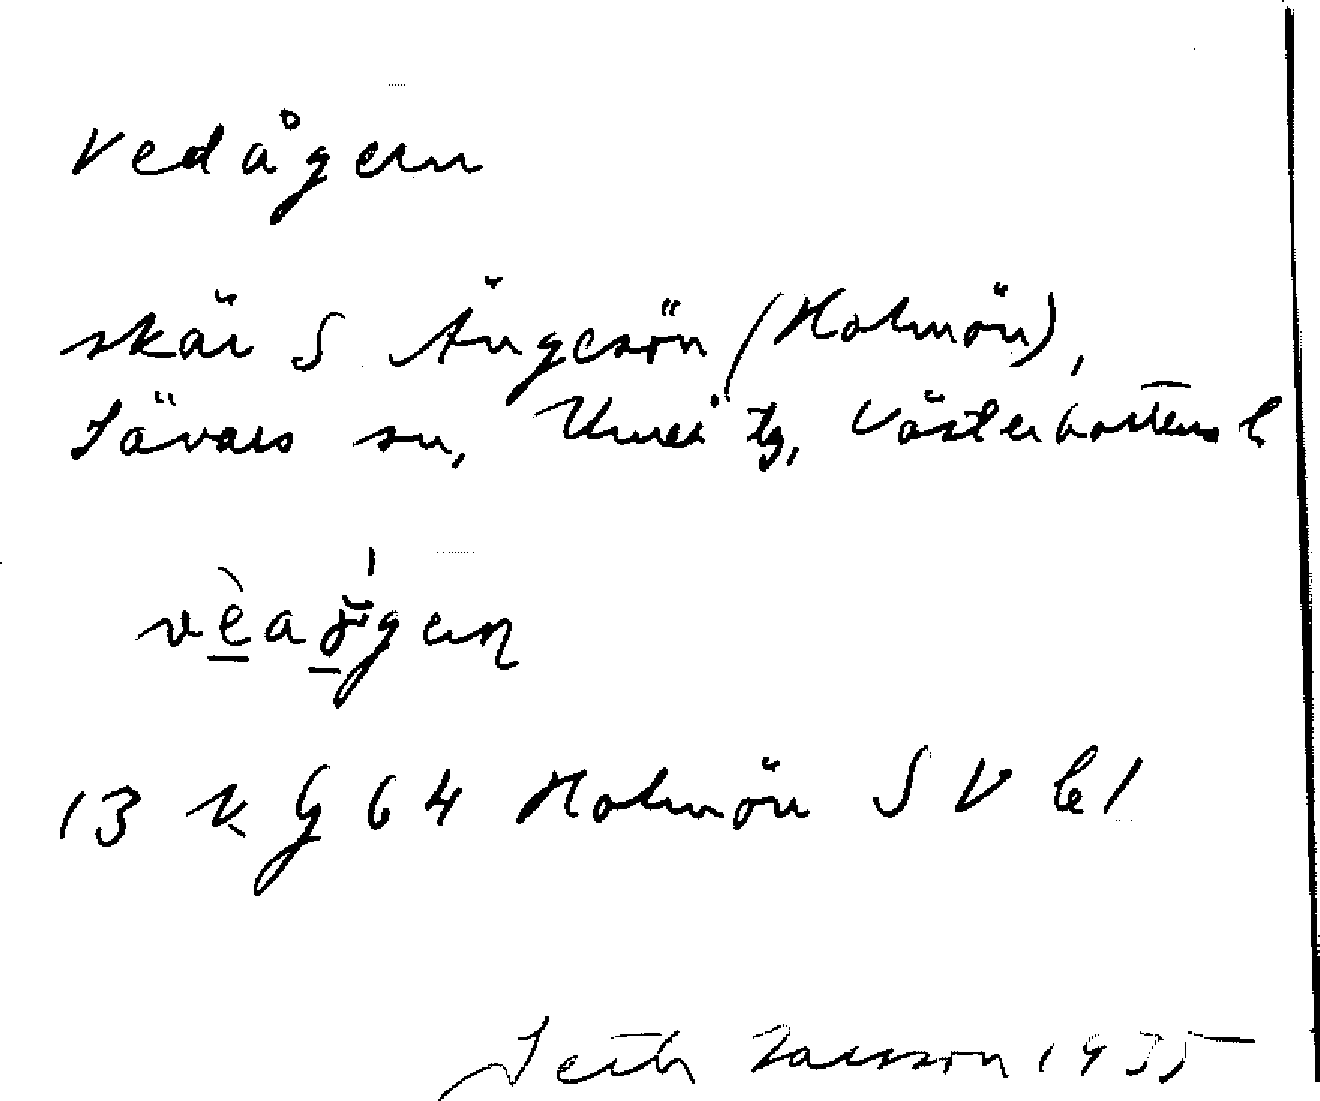 Vedågern
skär S Ängesön (Holmön),
Sävars sn, Umeå tg, Västerbottens l
13 k G 64 Holmön SV bl
Seth Larsson 1935